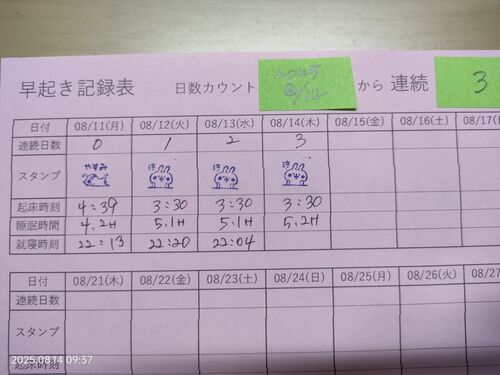 早起き記録表 日数カウント 2025 8/12 から 連続 3
日付 08/11(月) 08/12(火) 08/13(水) 08/14(木) 08/15(金) 08/16(土) 08/17(
連続日数 0 1 2 3
スタンプ やすみ 済 済 済
起床時刻 4:39 3:30 3:30 3:30
睡眠時間 4.2H 5.1H 5.1H 5.2H
就寝時刻 22:13 22:20 22:04
日付 08/21(木) 08/22(金) 08/23(土) 08/24(日) 08/25(月) 08/26(火) 08/27
連続日数
スタンプ
起床時刻
2025.08.14 09:37